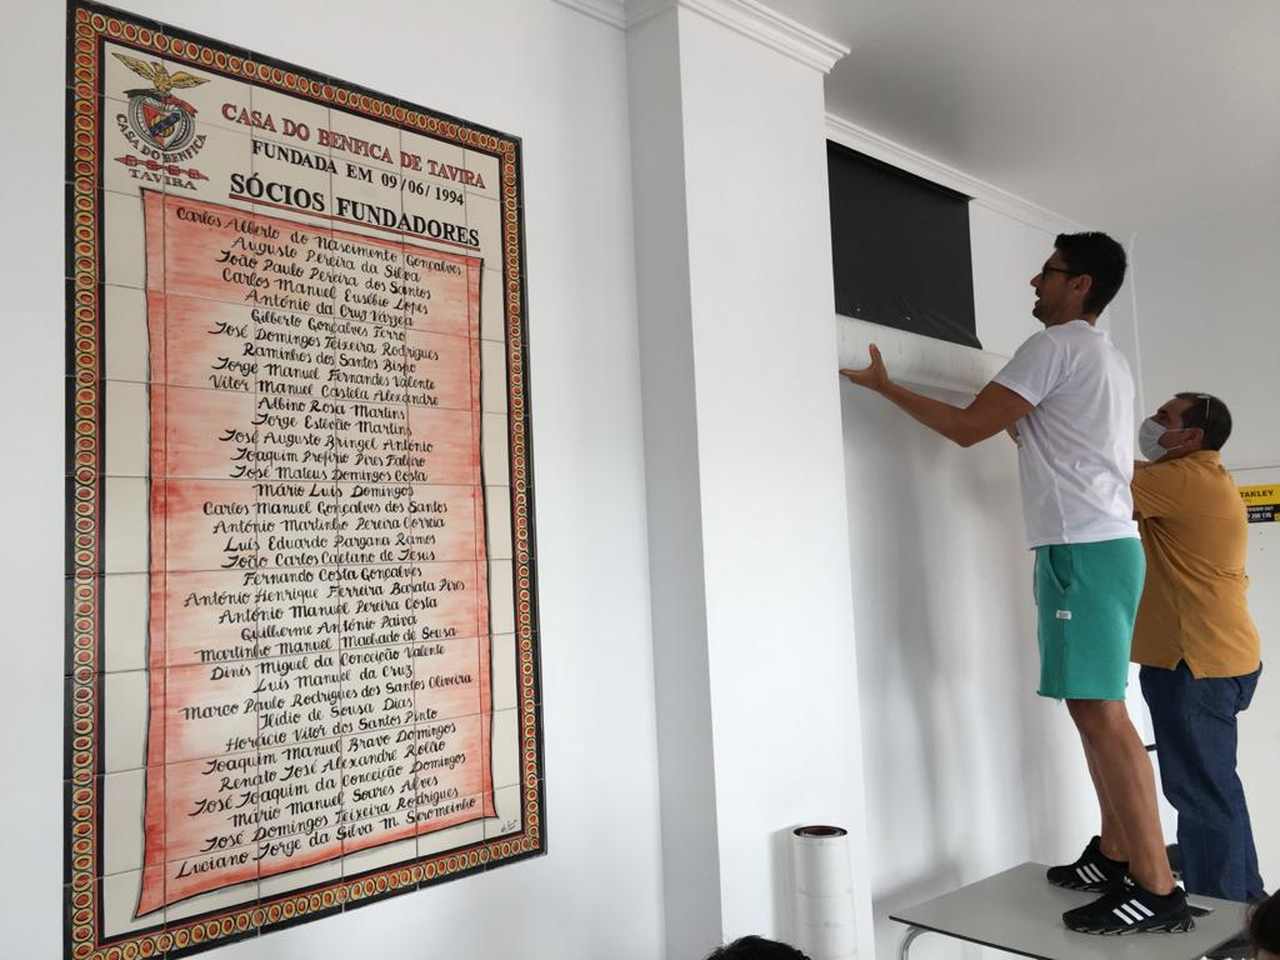 CASA DO BENFICA
TAVIRA
CASA DO BENFICA DE TAVIRA
FUNDADA EM 09/06/1994
SÓCIOS FUNDADORES
Carlos Alberto do Nascimento Gonçalves
Augusto Pereira da Silva
João Paulo Pereira dos Santos
Carlos Manuel Eusébio Lopes
António da Cruz Várzea
Gilberto Gonçalves Ferro
José Domingos Teixeira Rodrigues
Raminhos dos Santos Bispo
Jorge Manuel Fernandes Valente
Vitor Manuel Castela Alexandre
Albino Rosa Martins
Jorge Estêvão Martins
José Augusto Bringel António
Joaquim Profirio Pires Faleiro
José Mateus Domingos Costa
Mário Luis Domingos
Carlos Manuel Gonçalves dos Santos
António Martinho Pereira Correia
Luís Eduardo Pargana Ramos
João Carlos Caetano de Jesus
Fernando Costa Gonçalves
António Henrique Ferreira Barata Pires
António Manuel Pereira Costa
Guilherme António Paiva
Martinho Manuel Machado de Sousa
Dinis Miguel da Conceição Valente
Luis Manuel da Cruz
Marco Paulo Rodrigues dos Santos Oliveira
Ilidio de Sousa Dias
Horácio Vitor dos Santos Pinto
Joaquim Manuel Bravo Domingos
Renato José Alexandre Rolão
José Joaquim da Conceição Domingos
Mário Manuel Soares Alves
José Domingos Teixeira Rodrigues
Luciano Jorge da Silva M. Seromeinho